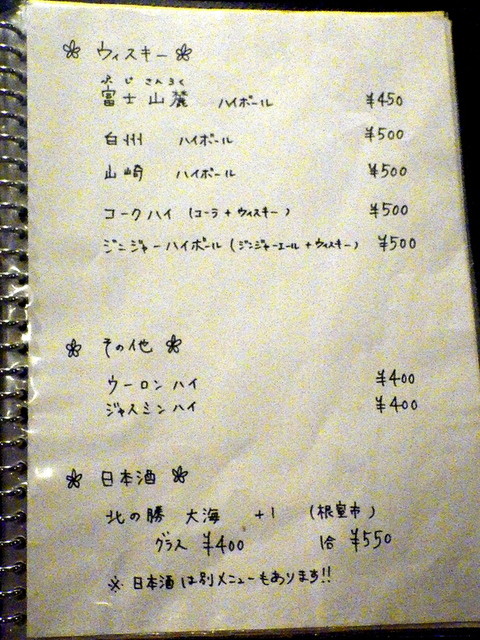 ウィスキー
ふじ さんろく
富士山麓 ハイボール ¥450
白州 ハイボール ¥500
山崎 ハイボール ¥500
コークハイ (コーラ + ウィスキー) ¥500
ジンジャーハイボール (ジンジャーエール + ウィスキー) ¥500
その他
ウーロンハイ ¥400
ジャスミンハイ ¥400
日本酒
北の勝 大海 +1 (根室市)
グラス ¥400 1合 ¥550
※ 日本酒は別メニューもあります!!